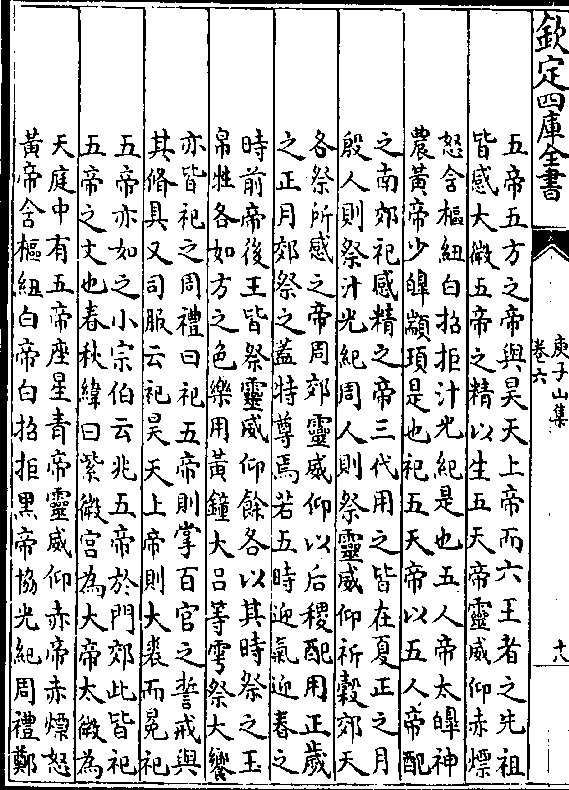 欽定四庫全書
庾子山集
卷六
十八
五帝五方之帝與昊天上帝而六王者之先祖
皆感大微五帝之精以生五天帝靈威仰赤熛
怒含樞紐白招拒汁光紀是也五人帝太皥神
農黃帝少皥顓頊是也祀五天帝以五人帝配
之南郊祀感精之帝三代用之皆在夏正之月
殷人則祭汁光紀周人則祭靈威仰祈穀郊天
各祭所感之帝周郊靈威仰以后稷配用正歲
之正月郊祭之葢特尊焉若五時迎氣迎春之
時前帝後王皆祭靈威仰餘各以其時祭之玉
帛牲各如方之色樂用黃鐘大呂等雩祭大饗
亦皆祀之周禮曰祀五帝則掌百官之誓戒與
其脩具又司服云祀昊天上帝則大裘而冕祀
五帝亦如之小宗伯云兆五帝於門郊此皆祀
五帝之文也春秋緯曰紫微宮為大帝太微為
天庭中有五帝座星青帝靈威仰赤帝赤熛怒
黃帝含樞紐白帝白招拒黑帝協光紀周禮鄭